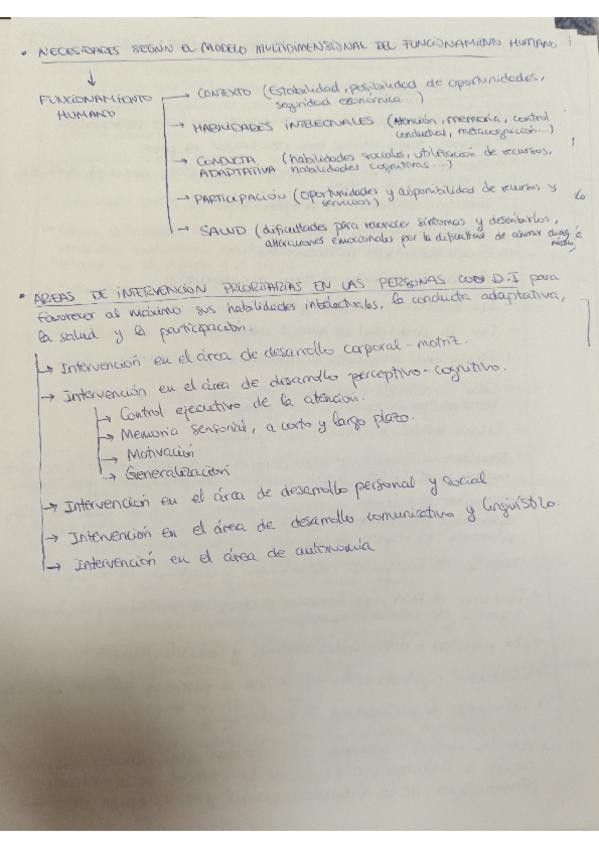 • NECESIDADES SEGÚN EL MODELO MULTIDIMENSIONAL DEL FUNCIONAMIENTO HUMANO
↓
FUNCIONAMIENTO HUMANO
→ CONTEXTO (Estabilidad, posibilidad de oportunidades,
seguridad económica...)
→ HABILIDADES INTELECTUALES (Atención, memoria, control
conductual, metacognición...)
→ CONDUCTA (habilidades sociales, utilización de recursos,
ADAPTATIVA habilidades cognitivas...)
→ PARTICIPACIÓN (oportunidades y disponibilidad de recursos y
servicios)
→ SALUD (dificultades para reconocer síntomas y describirlos,
alteraciones emocionales por la dificultad de asumir
• ÁREAS DE INTERVENCIÓN PRIORITARIAS EN LAS PERSONAS CON D.I para
favorecer al máximo sus habilidades intelectuales, la conducta adaptativa,
la salud y la participación.
→ Intervención en el área de desarrollo corporal-motriz.
→ Intervención en el área de desarrollo perceptivo-cognitivo.
→ Control ejecutivo de la atención.
→ Memoria sensorial, a corto y largo plazo.
→ Motivación
→ Generalización
→ Intervención en el área de desarrollo personal y social
→ Intervención en el área de desarrollo comunicativo y lingüístico.
→ Intervención en el área de autonomía